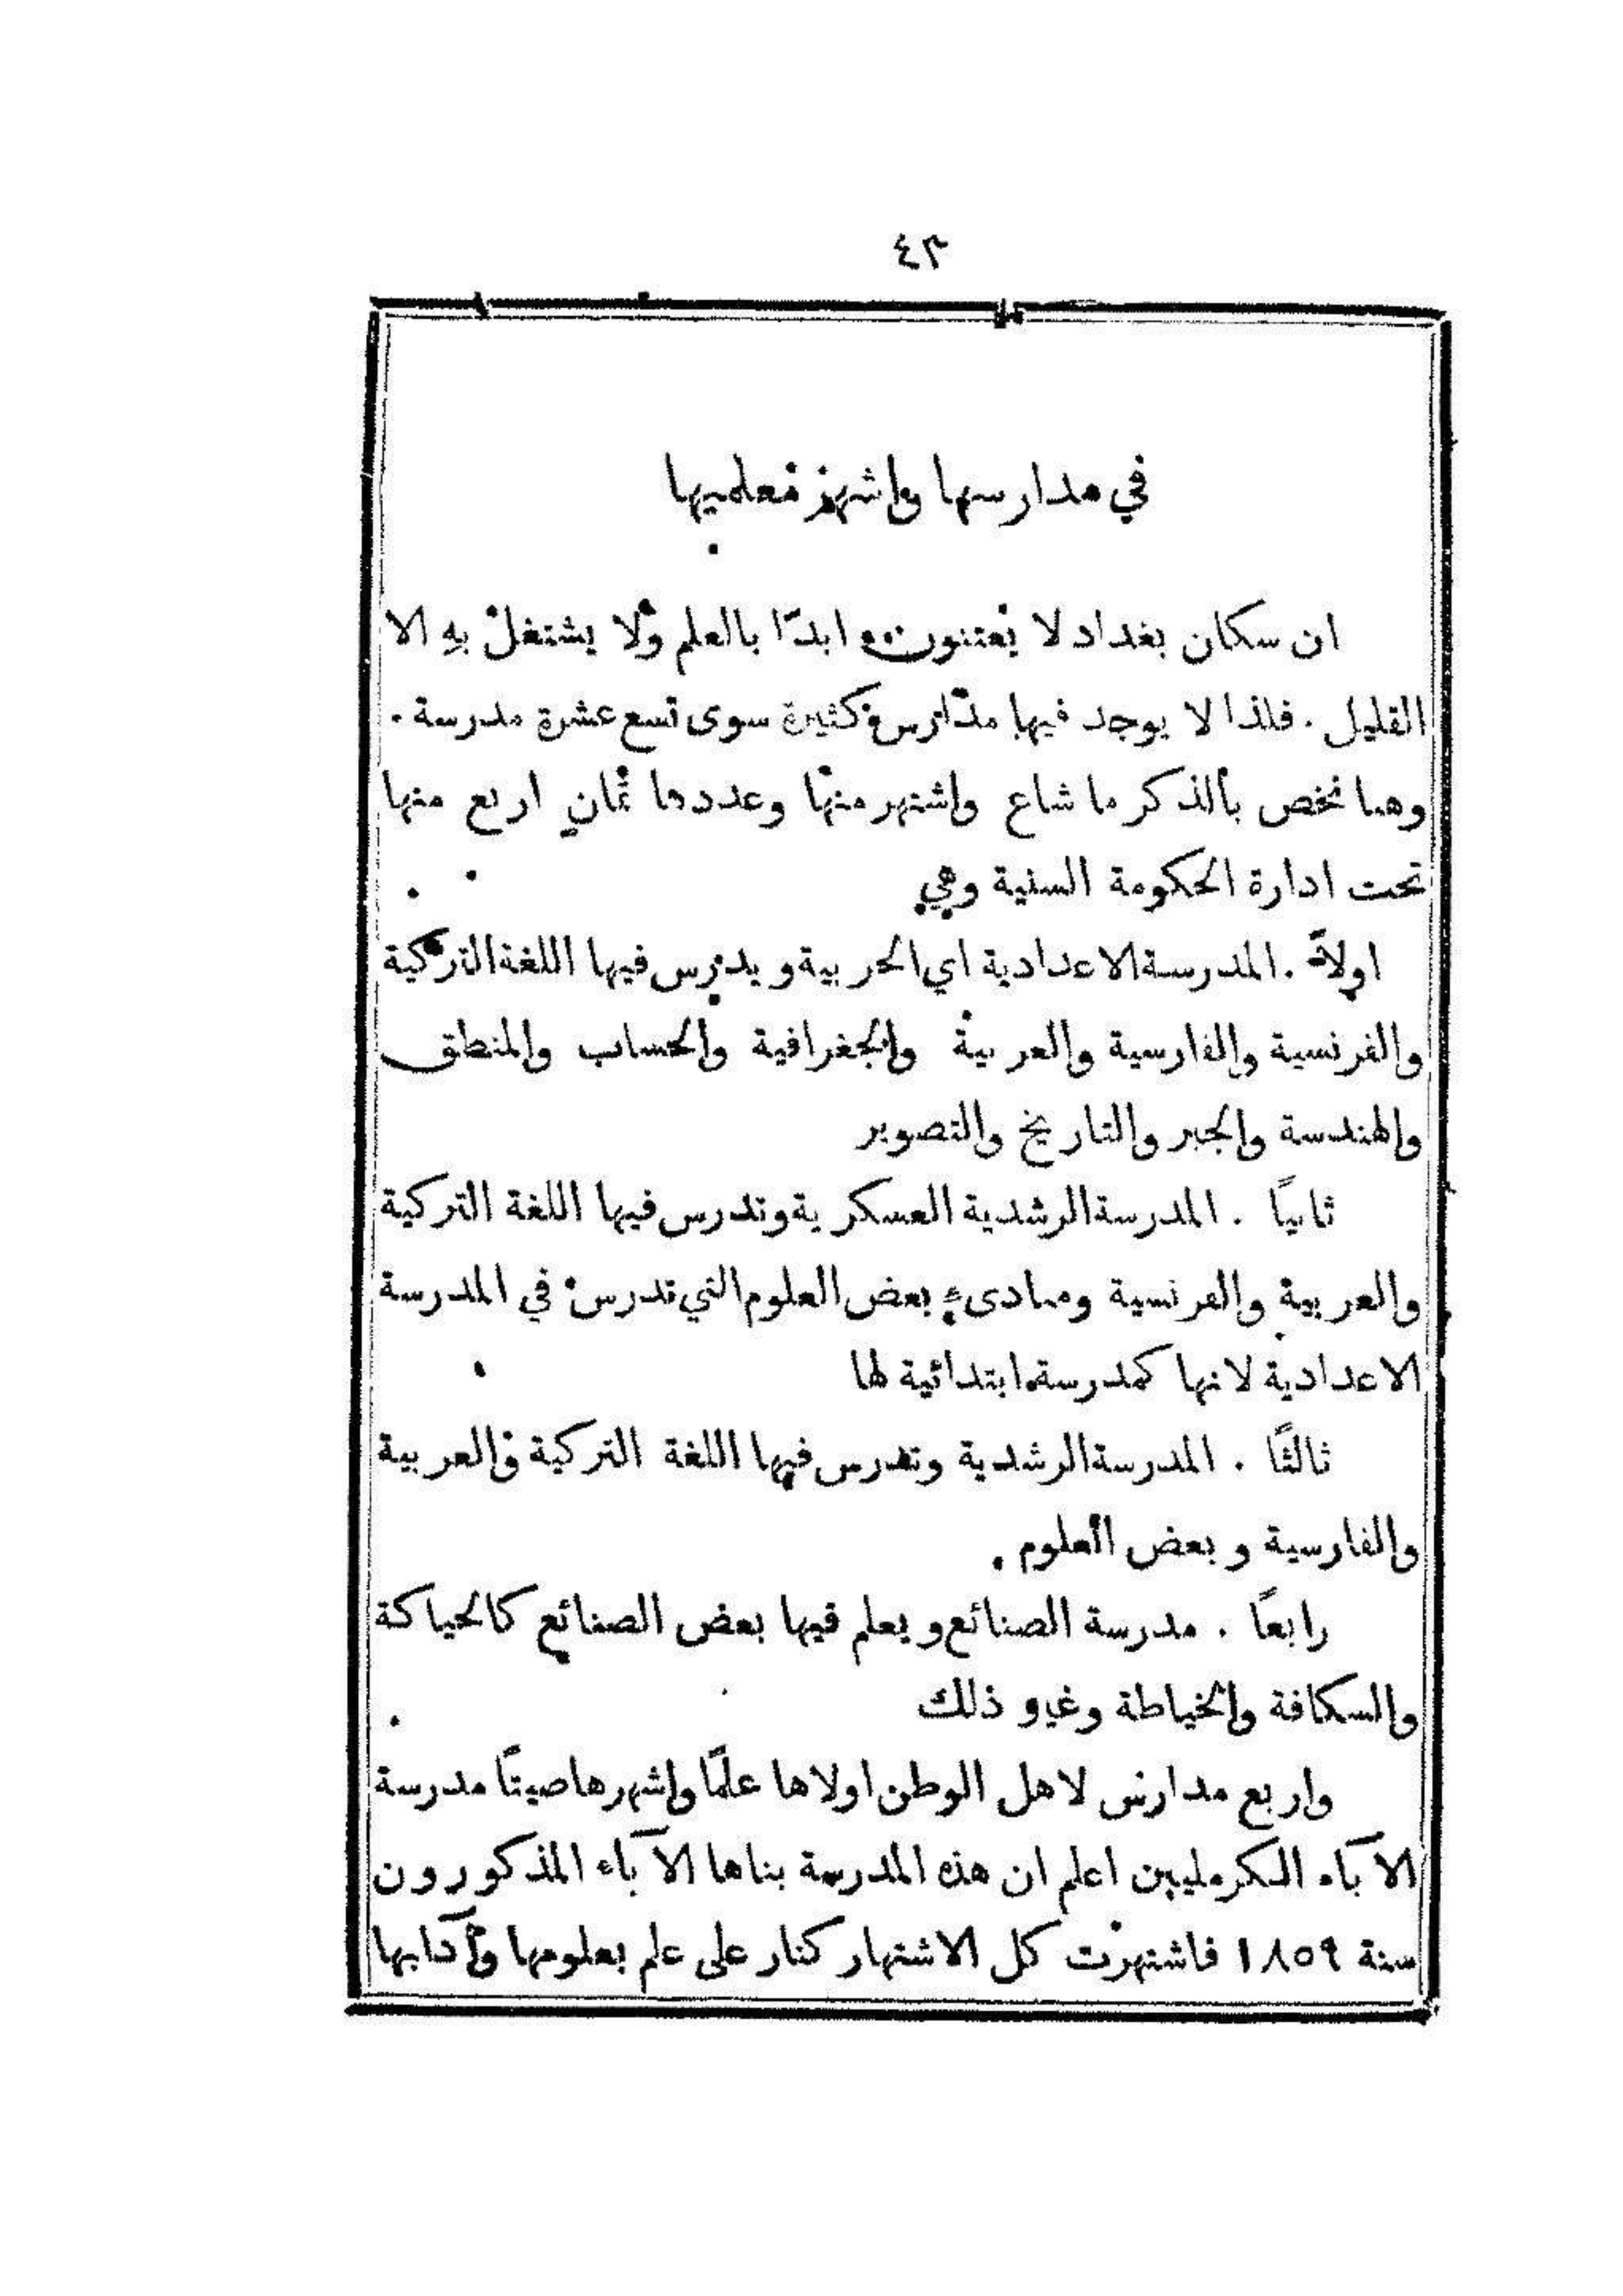 ٤٣
في مدارسها واشهر معلميها
ان سكان بغداد لا يعتنون ابدًا بالعلم ولا يشتغل بهِ الا
القليل . فلذا لا يوجد فيها مدارس كثيرة سوى تسع عشرة مدرسة .
وهنا نخص بالذكر ما شاع واشتهر منها وعددها ثمانٍ اربع منها
تحت ادارة الحكومة السنية وهي
اولاً . المدرسة الاعدادية اي الحربية ويدرس فيها اللغة التركية
والفرنسية والفارسية والعربية والجغرافية والحساب والمنطق
والهندسة والجبر والتاريخ والتصوير
ثانيًا . المدرسة الرشدية العسكرية وتدرس فيها اللغة التركية
والعربية والفرنسية ومبادىء بعض العلوم التي تدرس في المدرسة
الاعدادية لانها كمدرسة ابتدائية لها
ثالثًا . المدرسة الرشدية وتدرس فيها اللغة التركية والعربية
والفارسية وبعض العلوم .
رابعًا . مدرسة الصنائع ويعلم فيها بعض الصنائع كالحياكة
والسكافة والخياطة وغير ذلك
واربع مدارس لاهل الوطن اولاها علمًا واشهرها صيتًا مدرسة
الآباء الكرمليين اعلم ان هذه المدرسة بناها الآباء المذكورون
سنة ١٨٥٩ فاشتهرت كل الاشتهار كنار على علم بعلومها وآدابها